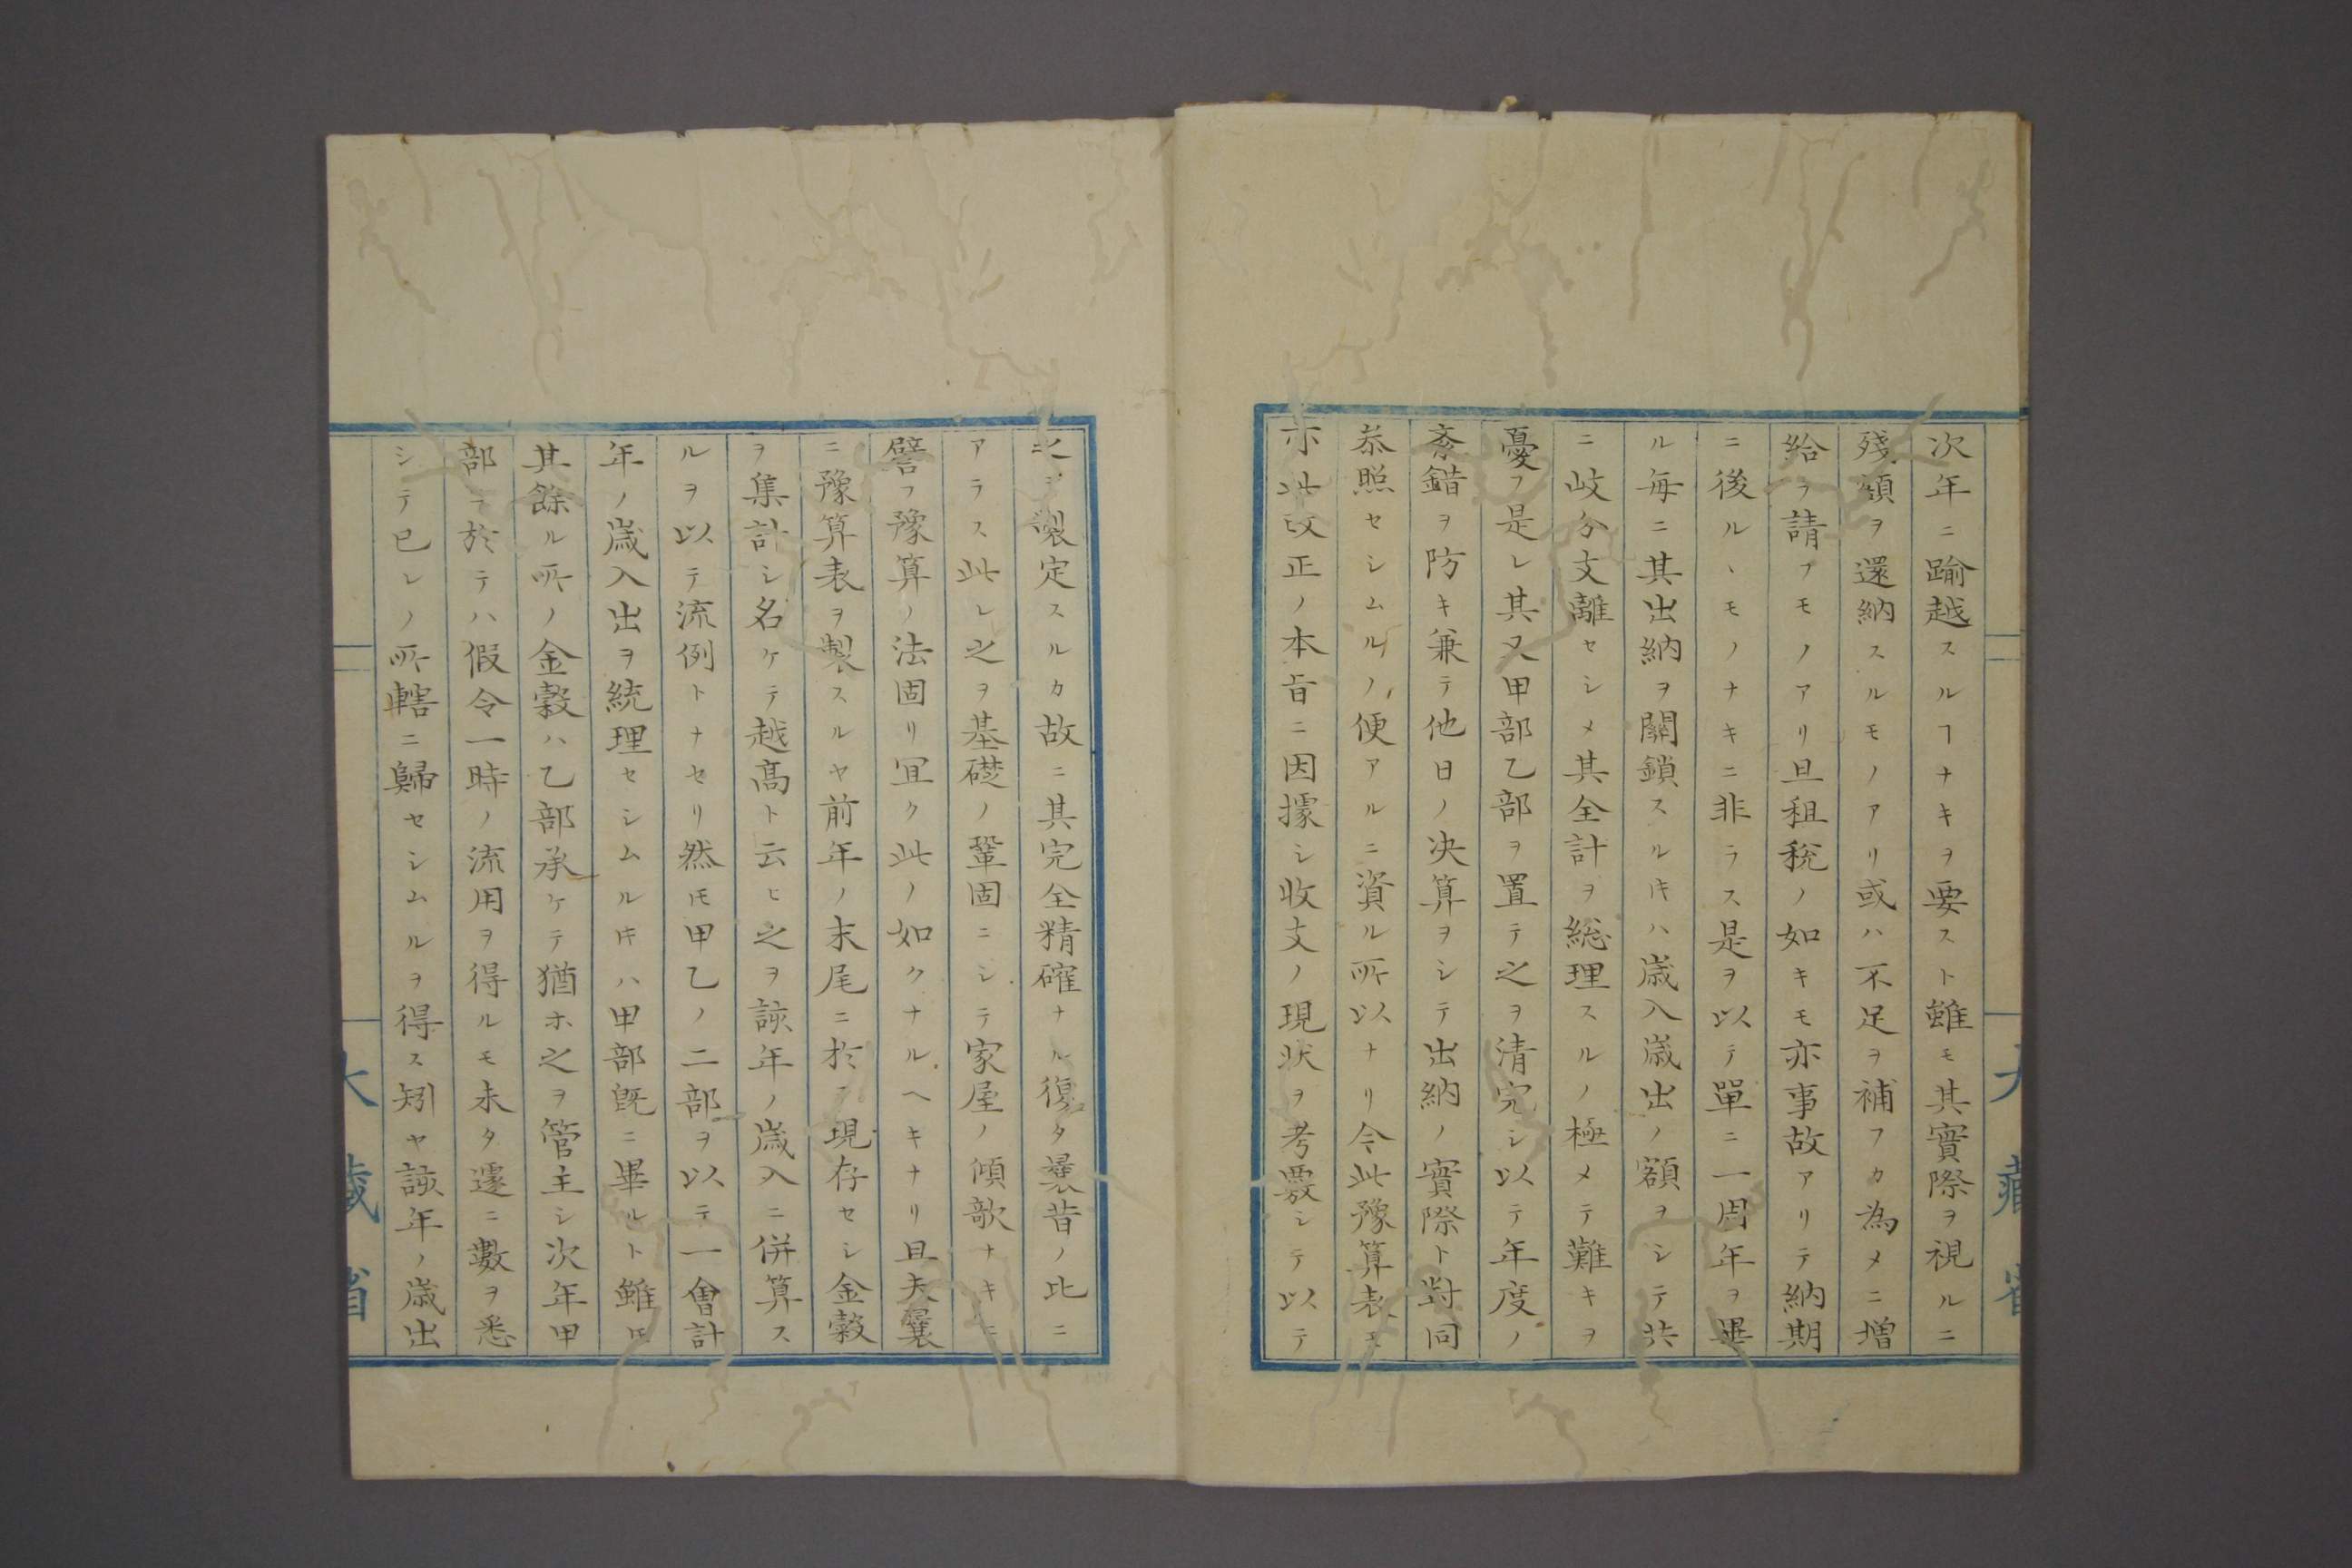 次年ニ踰越スルヿナキヲ要スト雖モ其實際ヲ視ルニ
殘額ヲ還納スルモノアリ或ハ不足ヲ補フカ為メニ増
給ヲ請フモノアリ且租税ノ如キモ亦事故アリテ納期
ニ後ルヽモノナキニ非ラス是ヲ以テ單ニ一周年ヲ畢
ル毎ニ其出納ヲ關鎖スル𪜈ハ歳入歳出ノ額ヲシテ共
ニ岐分支離セシメ其全計ヲ総理スルノ極メテ難キヲ
憂フ是レ其又甲部乙部ヲ置テ之ヲ清完シ以テ年度ノ
紊錯ヲ防キ兼テ他日ノ决算ヲシテ出納ノ實際ト對同
叅照セシムルノ便アルニ資ル所以ナリ今此豫算表モ
亦此改正ノ本旨ニ因據シ收支ノ現状ヲ考覈シテ以テ
之ヲ製定スルカ故ニ其完全精確ナル復タ曩昔ノ比ニ
アラス此レ之ヲ基礎ノ鞏固ニシテ家屋ノ傾欹ナキニ
譬フ豫算ノ法固リ冝ク此ノ如クナルヘキナリ且夫曩
ニ豫算表ヲ製スルヤ前年ノ末尾ニ於テ現存セシ金穀
ヲ集計シ名ケテ越髙ト云ヒ之ヲ該年ノ歳入ニ併算ス
ルヲ以テ流例トナセリ然𪜈甲乙ノ二部ヲ以テ一會計
年ノ歳入出ヲ統理セシムル𪜈ハ甲部既ニ畢ルト雖𪜈
其餘ル所ノ金穀ハ乙部承ケテ猶ホ之ヲ管主シ次年甲
部ニ於テハ假令一時ノ流用ヲ得ルモ未タ遽ニ數ヲ悉
シテ已レノ所轄ニ歸セシムルヲ得ス矧ヤ該年ノ歳出
大藏省
大藏省